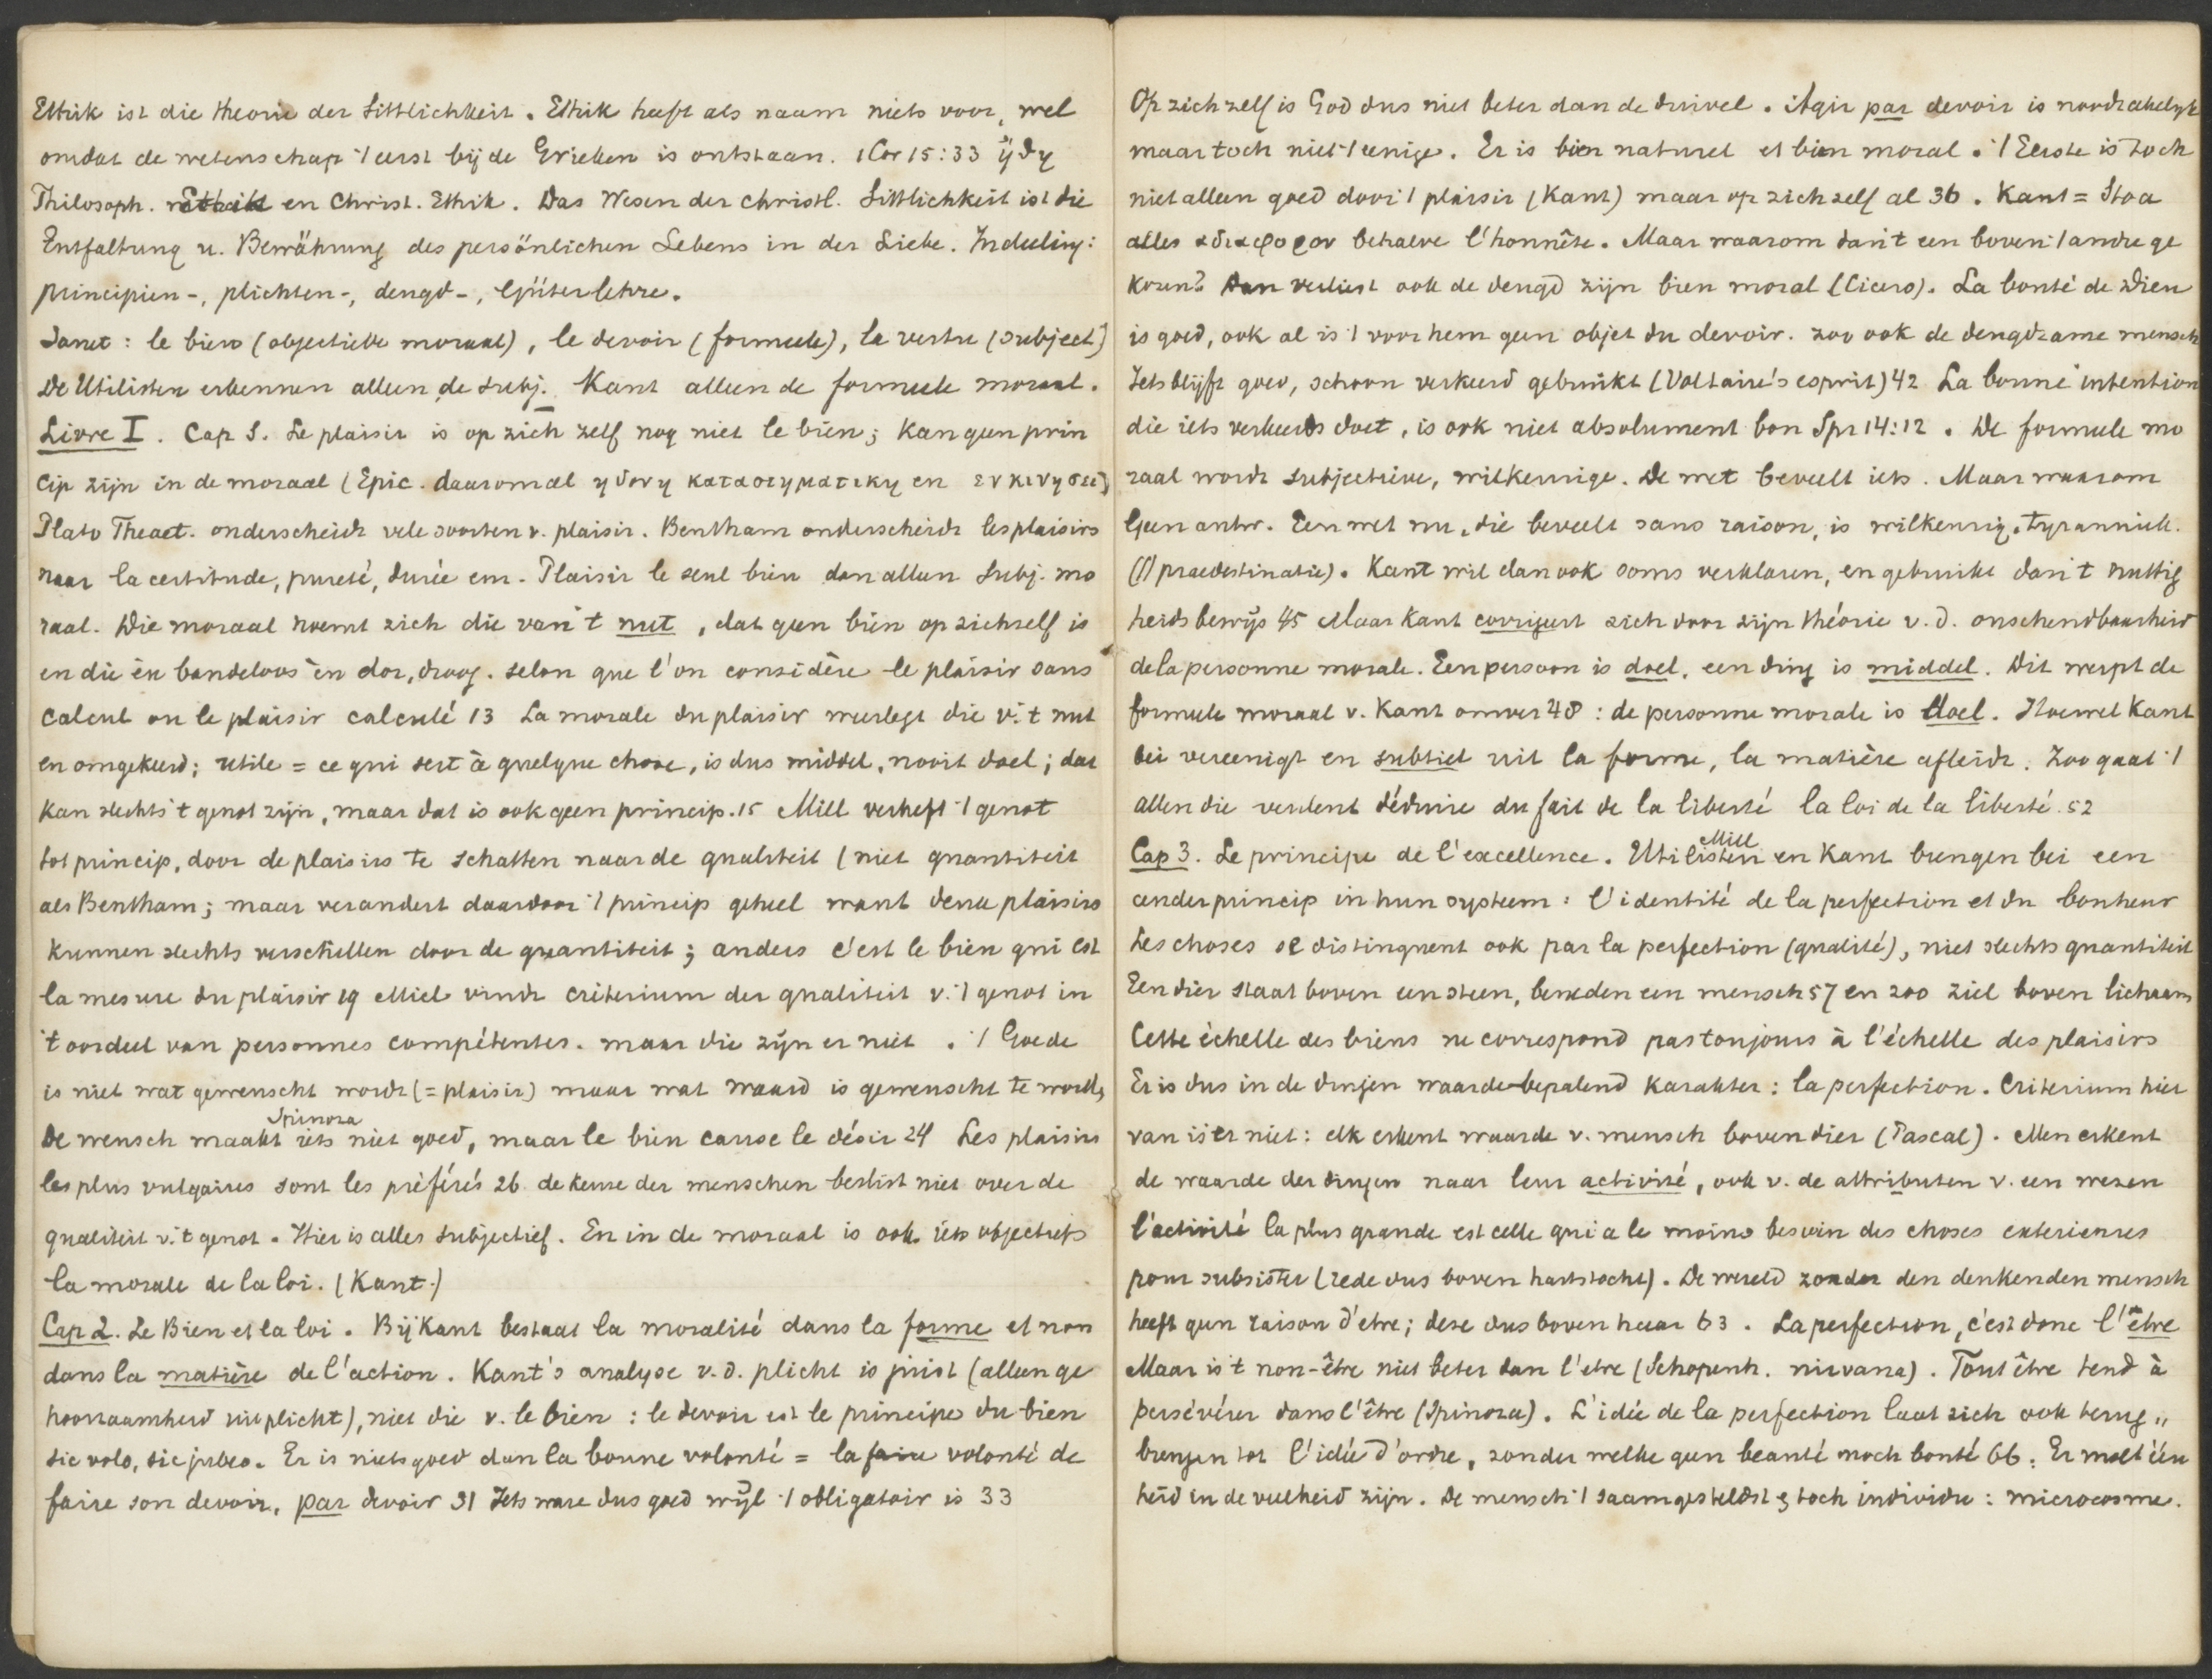 Ethik ist die Theorie der Sittlichkeit. Ethik heeft als naam niets voor, wel
omdat de wetenschap 't eerst bij de Grieken is ontstaan. 1 Cor 15:33 ηδη
Philosoph. en Christ. Ethik. Das Wesen der christl. Sittlichkeit ist die
Entfaltung u. Bewährung des persönlichen Lebens in der Liebe. Indeeling:
principien-, plichten-, deugd-, Güterlehre.
Janet: le bien (objectieve moraal), le devoir (formeele), la vertu (subject)
De Utilisten erkennen alleen de subj. Kant alleen de formeele moraal.
Livre I. Cap 1. Le plaisir is op zich zelf nog niet le bien; kan geen prin
cip zijn in de moraal (Epic. daarom al ηδονη καταστηματικη en εν κινησει)
Plato Theaet. onderscheidt vele soorten v. plaisir. Bentham onderscheidt les plaisirs
naar la certitude, pureté, durée enz. Plaisir le seul bien dan alleen subj. mo
raal. Die moraal noemt zich die van 't nut, dat geen bien op zichzelf is
en die èn bandeloos èn dor, droog. selon que l'on considère le plaisir sans
calcul ou le plaisir calculé 13 La morale du plaisir weerlegt die v. 't nut
en omgekeerd; utile = ce qui sert à quelque chose, is dus middel, nooit doel; dat
kan slechts 't genot zijn, maar dat is ook geen princip. 15 Mill verheft 't genot
tot princip, door de plaisirs te schatten naar de qualiteit (niet quantiteit
als Bentham; maar verandert daardoor 't princip geheel want deze plaisirs
kunnen slechts verschillen door de quantiteit; anders c'est le bien qui est
la mesure du plaisir 19 Mill vindt criterium der qualiteit v. 't genot in
't oordeel van personnes compétentes. maar die zijn er niet. 't Goede
is niet wat gewenscht wordt (= plaisir) maar wat waard is gewenscht te worden
Spinoza
De mensch maakt iets niet goed, maar le bien cause le désir 24 Les plaisirs
les plus vulgaires sont les préférés 26 de keuze der menschen beslist niet over de
qualiteit v. 't genot. Hier is alles subjectief. En in de moraal is ook iets objectiefs
la morale de la loi. (Kant.)
Cap 2. Le Bien et la loi. Bij Kant bestaat la moralité dans la forme et non
dans la matière de l'action. Kant's analyse v. d. plicht is juist (alleen ge
hoorzaamheid uit plicht), niet die v. le bien: le devoir est le principe du bien
sic volo, sic jubeo. Er is niets goed dan la bonne volonté = la faire volonté de
faire son devoir, par devoir 31 Iets ware dus goed wijl 't obligatoir is 33
Op zich zelf is God dus niet beter dan de duivel. Agir par devoir is noodzakelijk
maar toch niet 't eenige. Er is bien naturel et bien moral. 't Eerste is toch
niet alleen goed door 't plaisir (Kant) maar op zich zelf al 36. Kant = Stoa
alles αδιαφορον behalve l'honnête. Maar waarom dan 't een boven 't andre ge
kozen? Dan verliest ook de deugd zijn bien moral (Cicero). La bonté de Dieu
is goed, ook al is 't voor hem geen objet du devoir. zoo ook de deugdzame mensch
Iets blijft goed, schoon verkeerd gebruikt (Voltaire's esprit) 42 La bonne intention
die iets verkeerds doet, is ook niet absolument bon Spr 14:12. De formeele mo
raal wordt subjectieve, willkeurige. De wet beveelt iets. Maar waarom
Geen antw. Een wet nu, die beveelt sans raison, is willkeurig, tyranniek.
(() praedestinatie). Kant wil dan ook soms verklaren, en gebruikt dan 't nuttig
heidsbewijs 45 Maar Kant corrigeert zich door zijn théorie v. d. onschendbaarheid
de la personne morale. Een persoon is doel, een ding is middel. Dit werpt de
formeele moraal v. Kant omver 48: de personne morale is doel. Hoewel Kant
bei vereenigt en subtiel uit la forme, la matière afleidt. Zoo gaat 't
allen die veulent déduire du fait de la liberté la loi de la liberté. 52
Mill
Cap 3. Le principe de l'excellence. Utilisten en Kant brengen bei een
ander princip in hun systeem: l'identité de la perfection et du bonheur
Les choses se distinguent ook par la perfection (qualité), niet slechts quantiteit
Een dier staat boven een steen, beneden een mensch 57 en zoo ziel boven lichaam
Cette échelle des biens ne correspond pas toujours à l'échelle des plaisirs
Er is dus in de dingen waarde-bepalend karakter: la perfection. Criterium hier
van is er niet: elk erkent waarde v. mensch boven dier (Pascal). Men erkent
de waarde der dingen naar leur activité, ook v. de attributen v. een wezen
l'activité la plus grande est celle qui a le moins besoin des choses exterieures
pour subsister (rede dus boven hartstocht). De wereld zonder den denkenden mensch
heeft geen raison d'être; deze dus boven haar 63. La perfection, c'est donc l'être
Maar is 't non-être niet beter dan l'etre (Schopenh. nirvana). Tout être tend à
persévérer dans l'être (Spinoza). L'idée de la perfection laat zich ook terug„
brengen tot l'idée d'ordre, zonder welke geen beauté noch bonté 66. Er moet één
heid in de veelheid zijn. De mensch 't saamgesteldst & toch individu: microcosme.